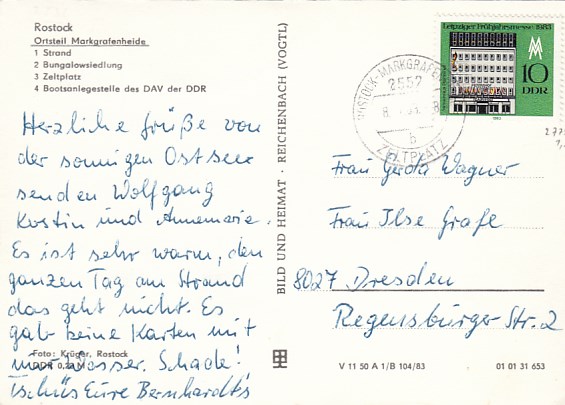 Rostock
Ortsteil Markgrafenheide
1 Strand
2 Bungalowsiedlung
3 Zeltplatz
4 Bootsanlegestelle des DAV der DDR
Herzliche Grüße von
der sonnigen Ostsee
senden Wolfgang
Kostin und Annemarie.
Es ist sehr warm, den
ganzen Tag am Strand
das geht nicht. Es
gab keine Karten mit
nur Wasser. Schade!
Tschüs Eure Bernhardt's
Foto: Krüger, Rostock
DDR 0,20 M
BILD UND HEIMAT · REICHENBACH (VOGTL)
Leipziger Frühjahrsmesse 1983
10
DDR
ROSTOCK-MARKGRAFEN
2557
b
ZELTPLATZ
Frau Gerda Wagner
Frau Ilse Grafe
8027 Dresden
Regensburger Str. 2
V 11 50 A 1/B 104/83
01 01 31 653